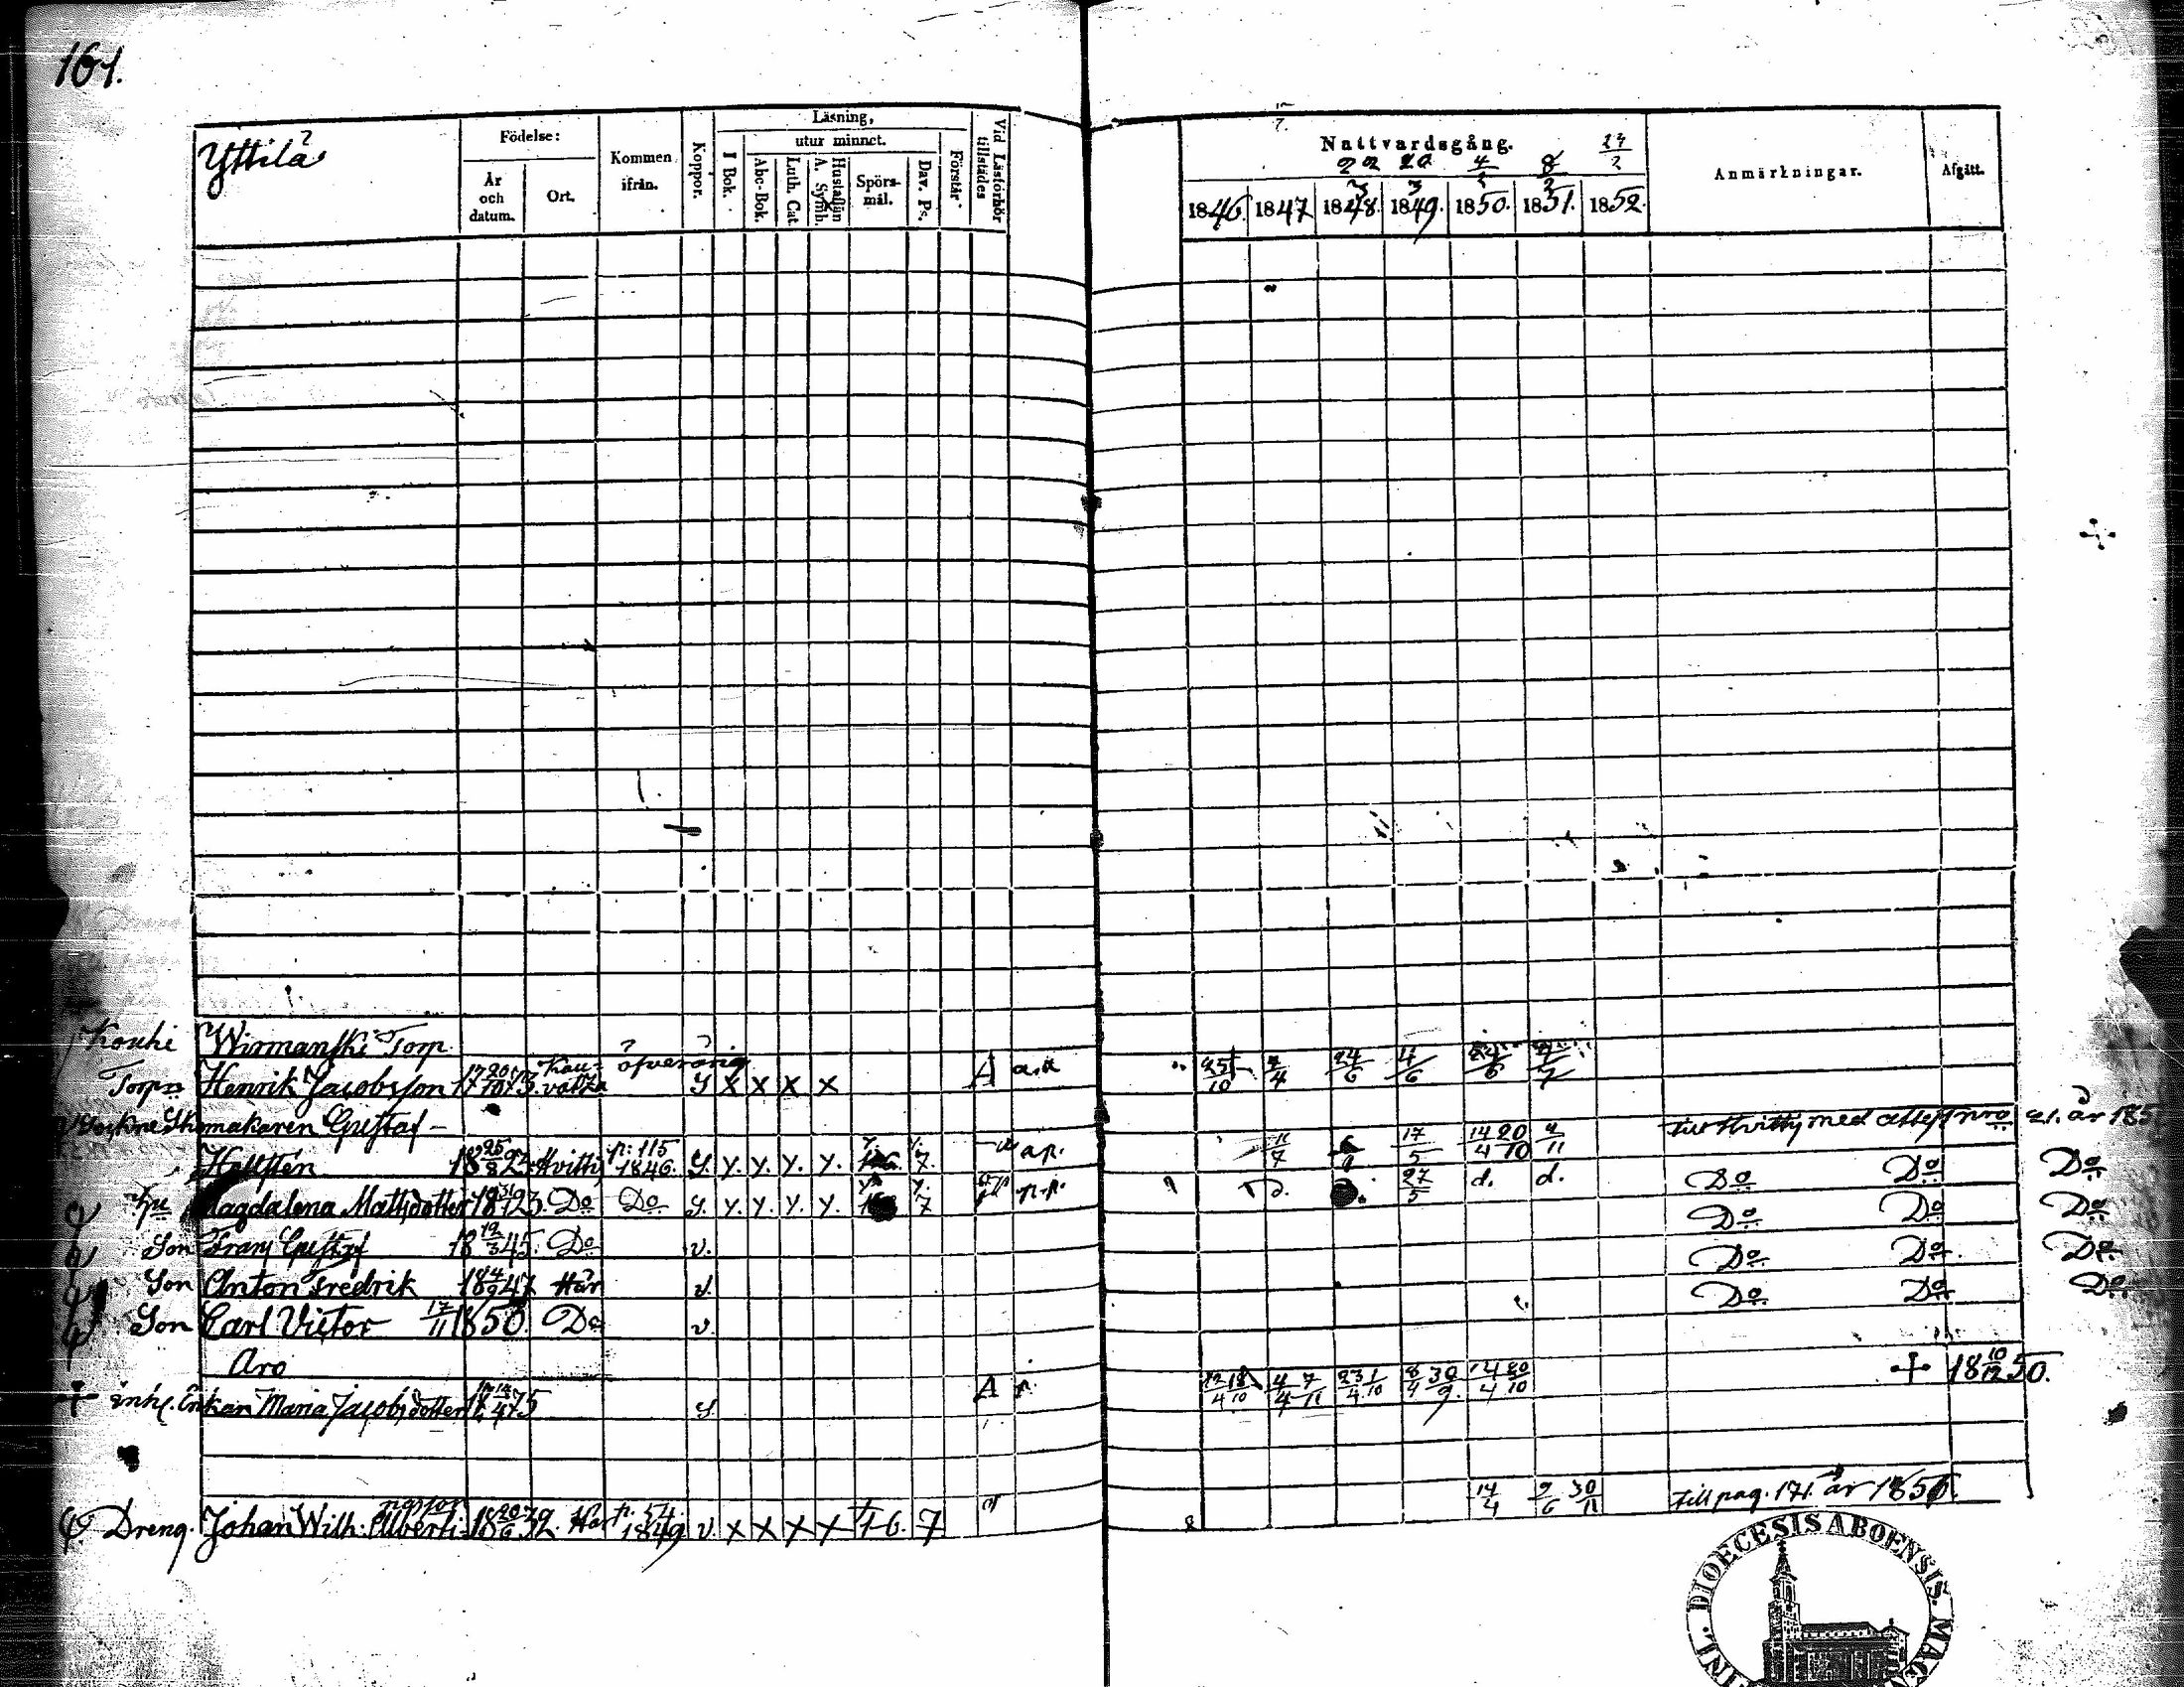 161.
Yttilä
Födelse:
År och datum.
Ort.
Kommen ifrån.
Koppor.
Läsning,
I Bok.
utur minnet.
Abc-Bok.
Luth. Cat.
Hustaflan A. Symb.
Spörsmål.
Dav. Ps.
Förstår
Vid Läsförhör tillstädes
Nattvardsgång.
22/3 20/3 4/2 8/2 27/2
1846. 1847 1848. 1849. 1850. 1851. 1852.
Anmärkningar.
Afgått.
Kouhi Wirmanski Torp
Torp. Henrik Jacobsson 17 20/10 73. Kauvatsa öfverårig y x x x x A 25/10 2/4 24/6 4/6
Sockne Skomakaren Gustaf
Hellstén 18 25/8 23. Hvittis p: 115 1846. y. y. y. y. y. 7. ap. 11/7 17/5 14/4 20/10 9/11 till Hvittis med attest nro 21. år 185
Hu Magdalena Mattsdotter 23. Do Do y. y. y. y. y. 7 p.p. 27/5 d. d. Do Do Do
Son Frans Gustaf 18 19/3 45. Do v. Do Do Do
Son Anton Fredrik 18 4/9 47 Här v. Do Do Do
Son Carl Victor 17/11 1850. Do v. Do Do Do
Aro
Inh. Enkan Maria Jacobsdotter 75 y A 12/4 18/10 4/4 7/11 23/4 1/10 8/4 30/9. 14/4 20/10 + 18 10/12 50.
Dreng. Johan Wilh. Albertinpsson 18 20/6 32. Här p. 54. 1849 v. x x x x 16. 7. 14/4 9/6 30/11 till pag. 171. år 1851.
DIOECESIS ABOENSIS.